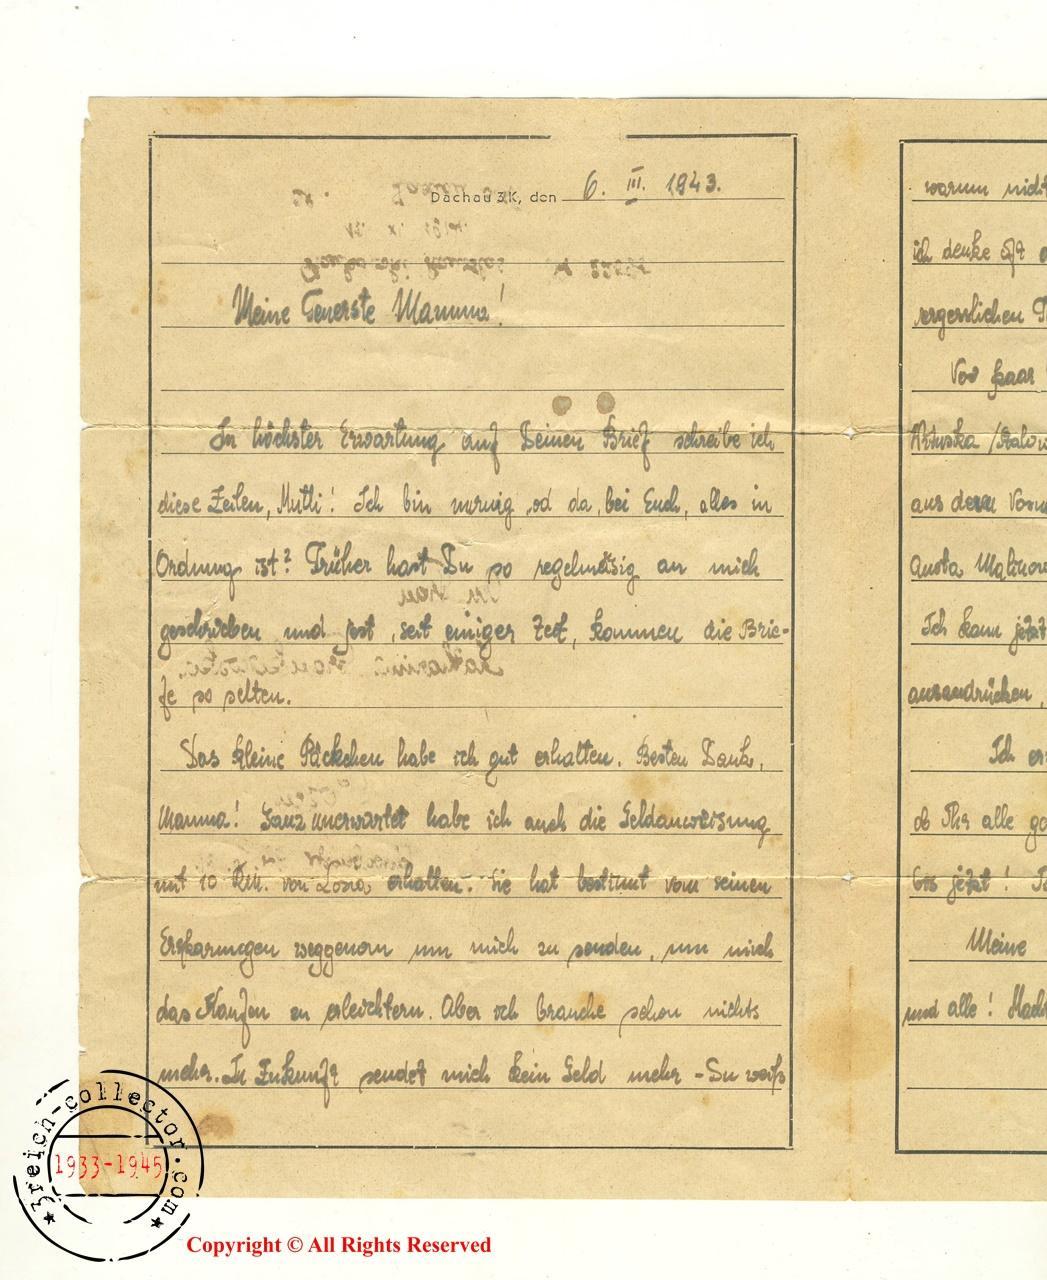 Dachau 3K, den 6. III. 1943.
Meine Teuerste Mamma!
In höchster Erwartung auf Deinen Brief schreibe ich
diese Zeilen, Mutti! Ich bin unruig, od da, bei Euch, alles in
Ordnung ist? Früher hast Du so regelmäsig an mich
geschrieben und jest, seit einiger Zeit, kommen die Brie-
fe so selten.
Das kleine Päckchen habe ich gut erhalten. Besten Dank,
Mamma! Ganz unerwartet habe ich auch die Geldanweisung
mit 10 RM. von erhalten. Sie hat bestimt vom seinen
weggenom um mich zu senden, um mich
das Kaufen zu erleichtern. Aber ich brauche schon nichts
mehr. In Zukunft sendet mich kein Geld mehr - Du weiß
warum nicht
ich denke oft
vergesslichen
Vor paar
aus dem
Ich kann jetzt
ausandrücken,
Ich
ob Ihr alle
bis jetzt!
Meine
und alle!
3reich-collector.com
1933-1945
Copyright © All Rights Reserved